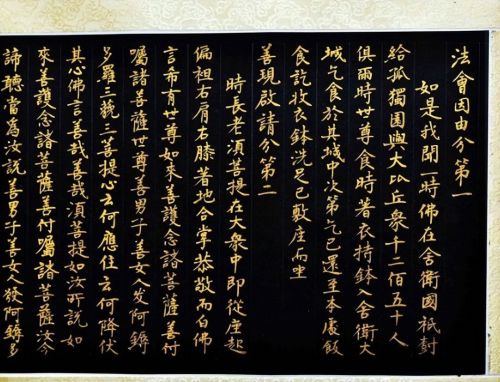 法會因由分第一
如是我聞一時佛在舍衛國祇封
給孤獨園與大比丘衆千二佰五十人
俱爾時世尊食時著衣持鉢入舍衛大
城乞食於其城中次第乞已還至本處飯
食訖收衣鉢洗足已敷座而坐
善現啟請分第二
時長老湏菩提在大衆中即從座起
偏袒右肩右膝著地合掌恭敬而白佛
言希有世尊如来善護念諸菩薩善付
囑諸菩薩世尊善男子善女人发阿耨
多羅三藐三菩提心云何應住云何降伏
其心佛言善哉善哉湏菩提如汝所說如
來善護念諸菩薩善付囑諸菩薩汝今
諦聽當為汝說善男子善女人發阿耨多